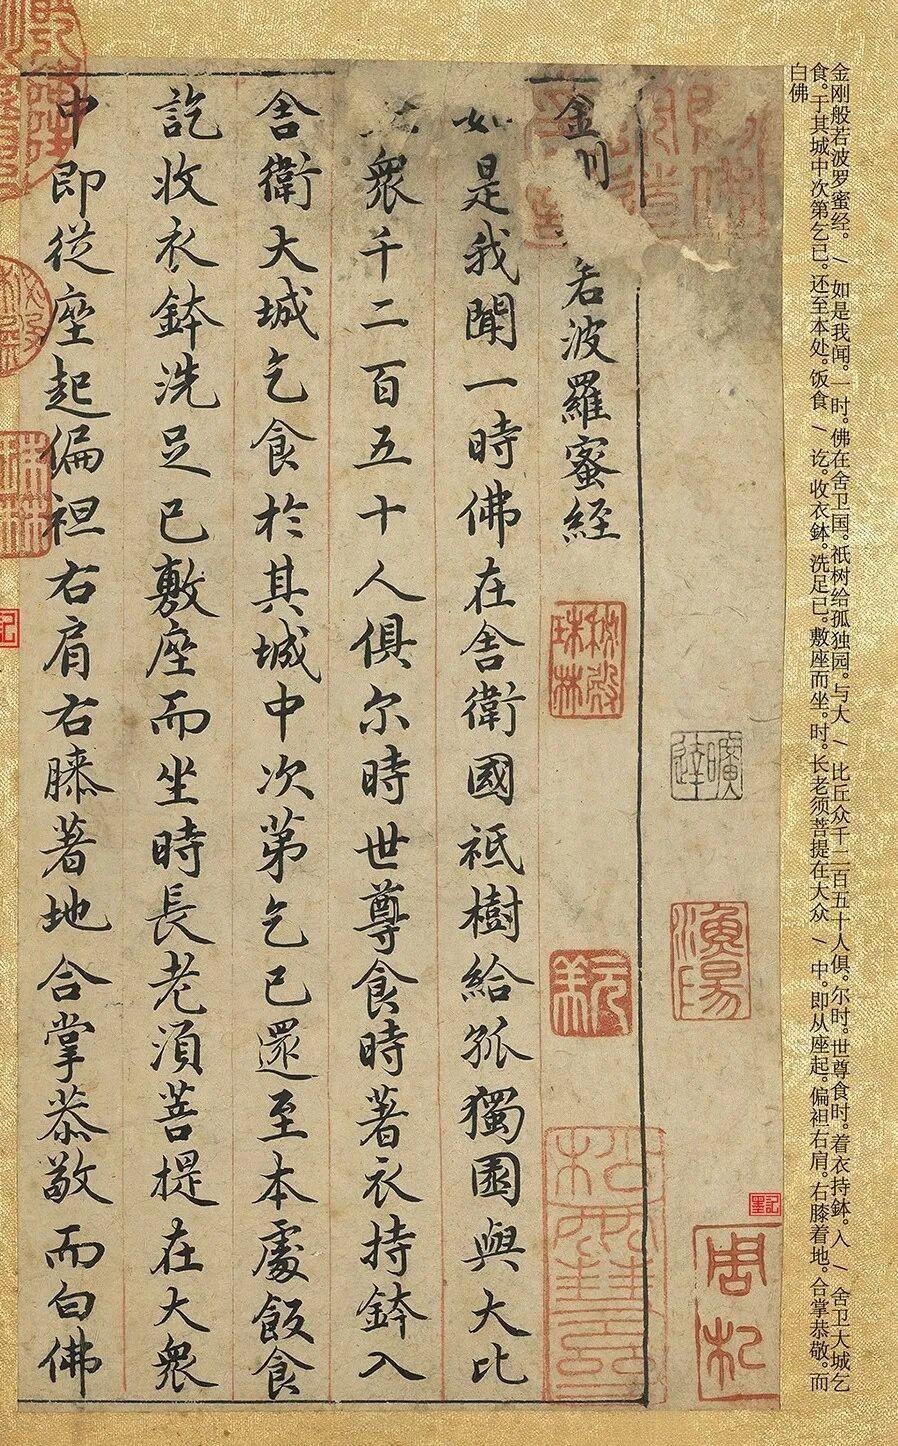 金刚般若波罗蜜经。/ 如是我闻。一时。佛在舍卫国。祇树给孤独园。与大 / 比丘众千二百五十人俱。尔时。世尊食时。着衣持鉢。入 / 舍卫大城乞
食。于其城中次第乞已。还至本处。饭食 / 讫。收衣鉢。洗足已。敷座而坐。时。长老须菩提在大众 / 中。即从座起。偏袒右肩。右膝着地。合掌恭敬。而
白佛
曠達
漁陽
墨記
金 若波羅蜜經
秘殿珠林
如是我聞一時佛在舍衛國祇樹給孤獨園與大比
眾千二百五十人俱尔時世尊食時著衣持鉢入
舍衛大城乞食於其城中次第乞已還至本處飯食
訖收衣鉢洗足已敷座而坐時長老須菩提在大眾
中即從座起偏袒右肩右膝著地合掌恭敬而白佛